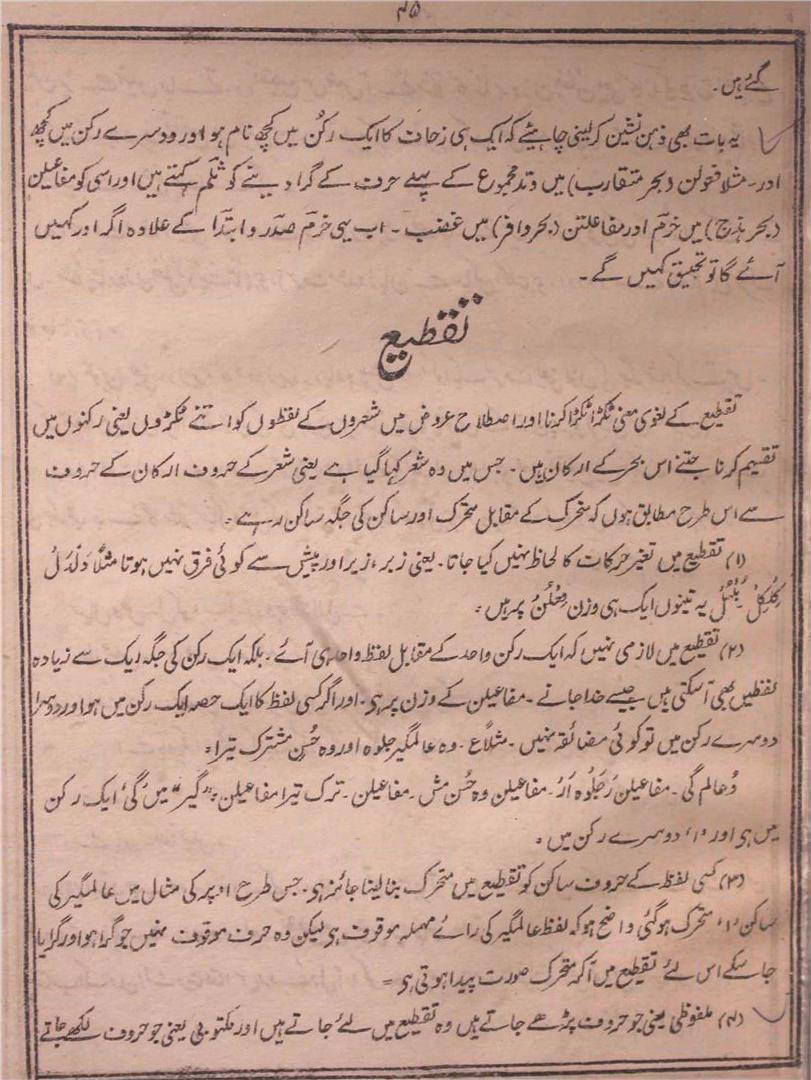 ۴۵
گئے ہیں۔
یہ بات بھی ذہن نشین کر لینی چاہیئے کہ ایک ہی زحاف کا ایک رکن میں کچھ نام ہو اور دوسرے رکن میں کچھ
اور۔ مثلا فعولن (بحر متقارب) میں وتد مجموع کے پہلے حرف کے گرا دینے کو ثلم کہتے ہیں اور اسی کو مفاعیلن
(بحر ہزج) میں خرم اور مفاعلتن (بحر وافر) میں عضب ۔ اب یہی خرم صدر و ابتدا کے علاوہ اگر اور کہیں
آئے گا تو تخبیق کہیں گے ۔
تقطیع
تقطیع کے لغوی معنی ٹکڑا ٹکڑا کرنا اور اصطلاح عروض میں شعروں کے لفظوں کو اتنے ٹکڑوں یعنی رکنوں میں
تقسیم کرنا جتنے اس بحر کے ارکان ہیں ۔ جس میں وہ شعر کہا گیا ہے یعنی شعر کے حروف ارکان کے حروف
سے اس طرح مطابق ہوں کہ متحرک کے مقابل متحرک اور ساکن کی جگہ ساکن رہے ۔
(۱) تقطیع میں تغیر حرکات کا لحاظ نہیں کیا جاتا ۔ یعنی زبر ، زیر اور پیش سے کوئی فرق نہیں ہوتا مثلاً دُلْدُلُ
کِلْکِلْ بُلْبُلْ یہ تینوں ایک ہی وزن فِعْلُنْ پر ہیں ۔
(۲) تقطیع میں لازمی نہیں کہ ایک رکن واحد کے مقابل لفظ واحد ہی آئے ۔ بلکہ ایک رکن کی جگہ ایک سے زیادہ
لفظیں بھی آسکتی ہیں جیسے خدا جانے ۔ مفاعیلن کے وزن پر ہی ۔ اور اگر کسی لفظ کا ایک حصہ ایک رکن میں ہو اور دوسرا
دوسرے رکن میں تو کوئی مضائقہ نہیں ۔ مثلاً ع ۔ وہ عالمگیر جلوہ اور وہ حُسنِ مشترک تیرا ۔
وُ عالم گی ۔ مفاعیلن رَجَلْوہ اَرُ ۔ مفاعیلن وہ حُسنِ مش ۔ مفاعیلن ۔ ترک تیرا مفاعیلن ۔ "گیر" میں 'گی' ایک رکن
میں ہی اور 'ر' دوسرے رکن میں ۔
(۳) کسی لفظ کے حروف ساکن کو تقطیع میں متحرک بنا لینا جائز ہو ۔ جس طرح اوپر کی مثال میں عالمگیر کی
ساکن 'ر' متحرک ہو گئی واضح ہو کہ لفظ عالمگیر کی رائے مہملہ موقوف ہی لیکن وہ حرف موقوف نہیں جو گرا ہو اور گرایا
جا سکے اس لئے تقطیع میں آکر متحرک صورت پیدا ہوتی ہی ۔
(۴) ملفوظی یعنی جو حروف پڑھے جاتے ہیں وہ تقطیع میں لئے جاتے ہیں اور مکتوبی یعنی جو حروف لکھے جاتے